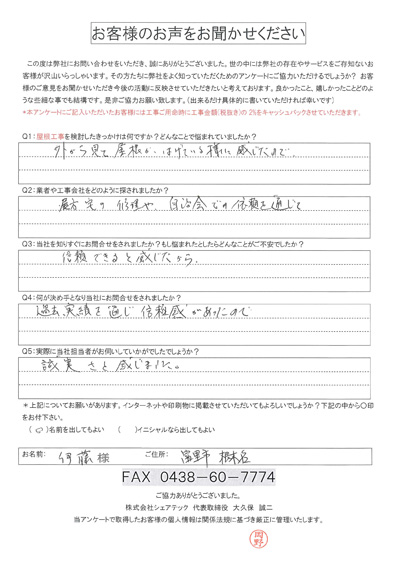 お客様のお声をお聞かせください
この度は弊社にお問い合わせをいただき、誠にありがとうございました。世の中には弊社の存在やサービスをご存知ないお
客様が沢山いらっしゃいます。その方たちに弊社をよく知っていただくためのアンケートにご協力いただけるでしょうか? お客
様のご意見をお聞かせいただき今後の活動に反映させていただきたいと考えております。良かったこと、嬉しかったことどのよ
うな些細な事でも結構です。是非ご協力お願い致します。(出来るだけ具体的に書いていただければ幸いです)
*本アンケートにご記入いただいたお客様には工事ご用命時に工事金額(税抜き)の2%をキャッシュバックさせていただきます。
Q1:屋根工事を検討したきっかけは何ですか?どんなことで悩まれていましたか?
外から見て屋根が、はげている様に感じたので
Q2:業者や工事会社をどのように探されましたか?
宅の修理や、自治会での依頼を通じて
Q3:当社を知りすぐにお問合せをされましたか?もし悩まれたとしたらどんなことがご不安でしたか?
信頼できると感じたから。
Q4:何が決め手となり当社にお問合せをされましたか?
過去実績を通じ信頼感があったので
Q5:実際に当社担当者がお伺いしていかがでしたでしょうか?
誠実さを感じました。
*上記についてお願いがあります。インターネットや印刷物に掲載させていただいてもよろしいでしょうか?下記の中から〇印
をお付下さい。
(〇)名前を出してもよい ( )イニシャルなら出してもよい
お名前: 伊藤様 ご住所:
FAX 0438-60-7774
ご協力ありがとうございました。
株式会社シェアテック 代表取締役 大久保 誠二
当アンケートで取得したお客様の個人情報は関係法規に基づき厳正に管理いたします。